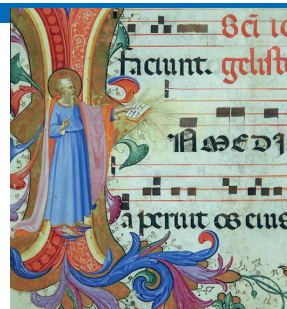 Sc̄i io
faciunt. gelist
IN MEDI
aperuit os eius